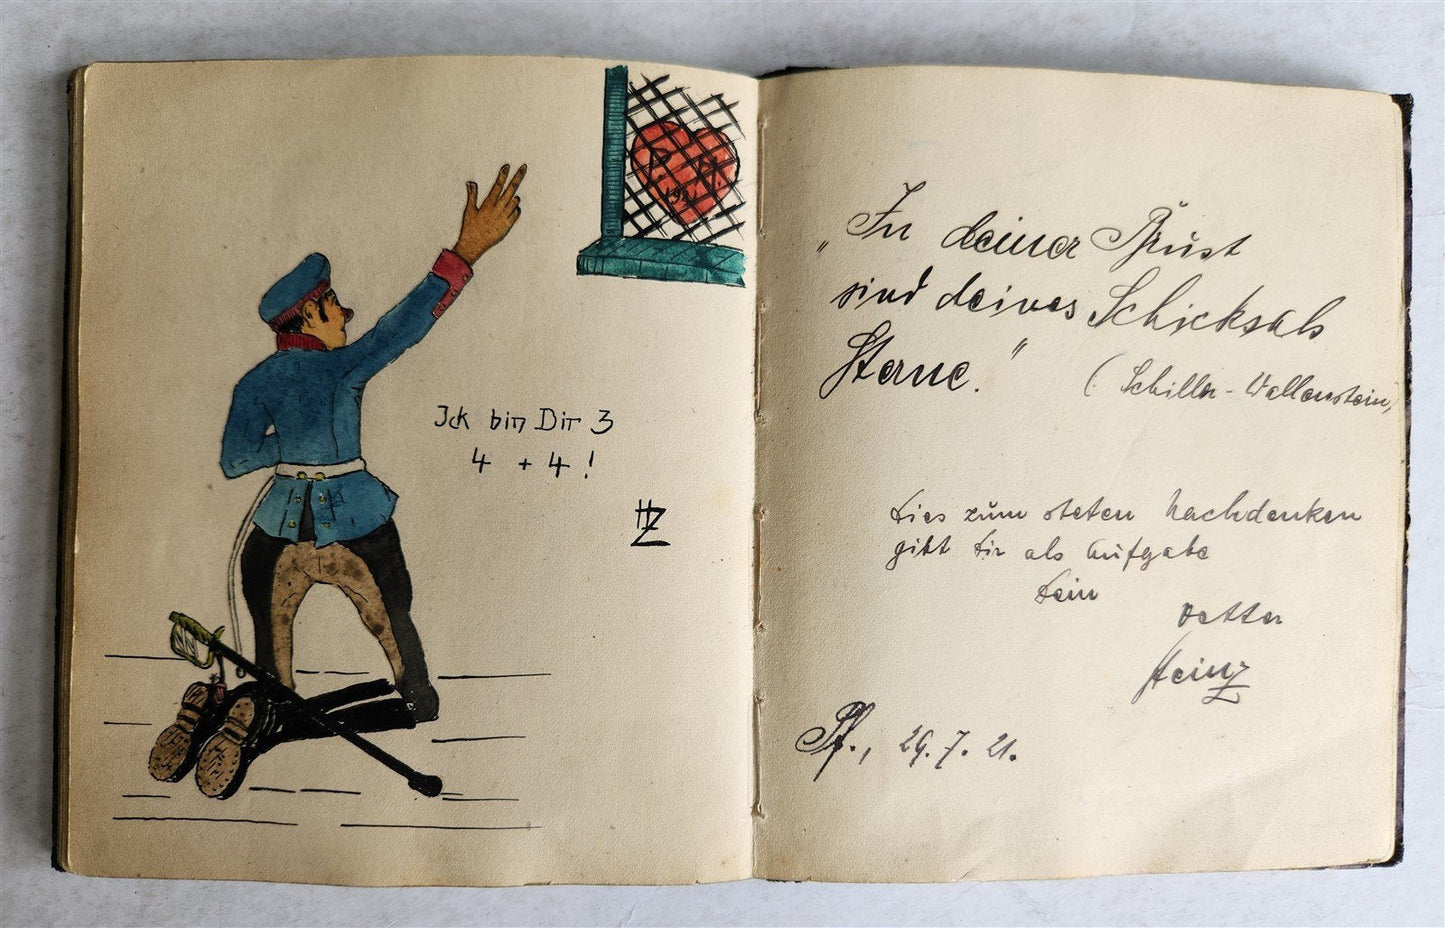 Ick bin Dir 3
4 + 4 !
HZ
1921
„In deiner Brust
sind deines Schicksals
Sterne.“
(Schiller-Wallenstein)
Dies zum steten Nachdenken
gibt Dir als Aufgabe
Dein
Vetter
Heinz
Pf., 29.7.21.